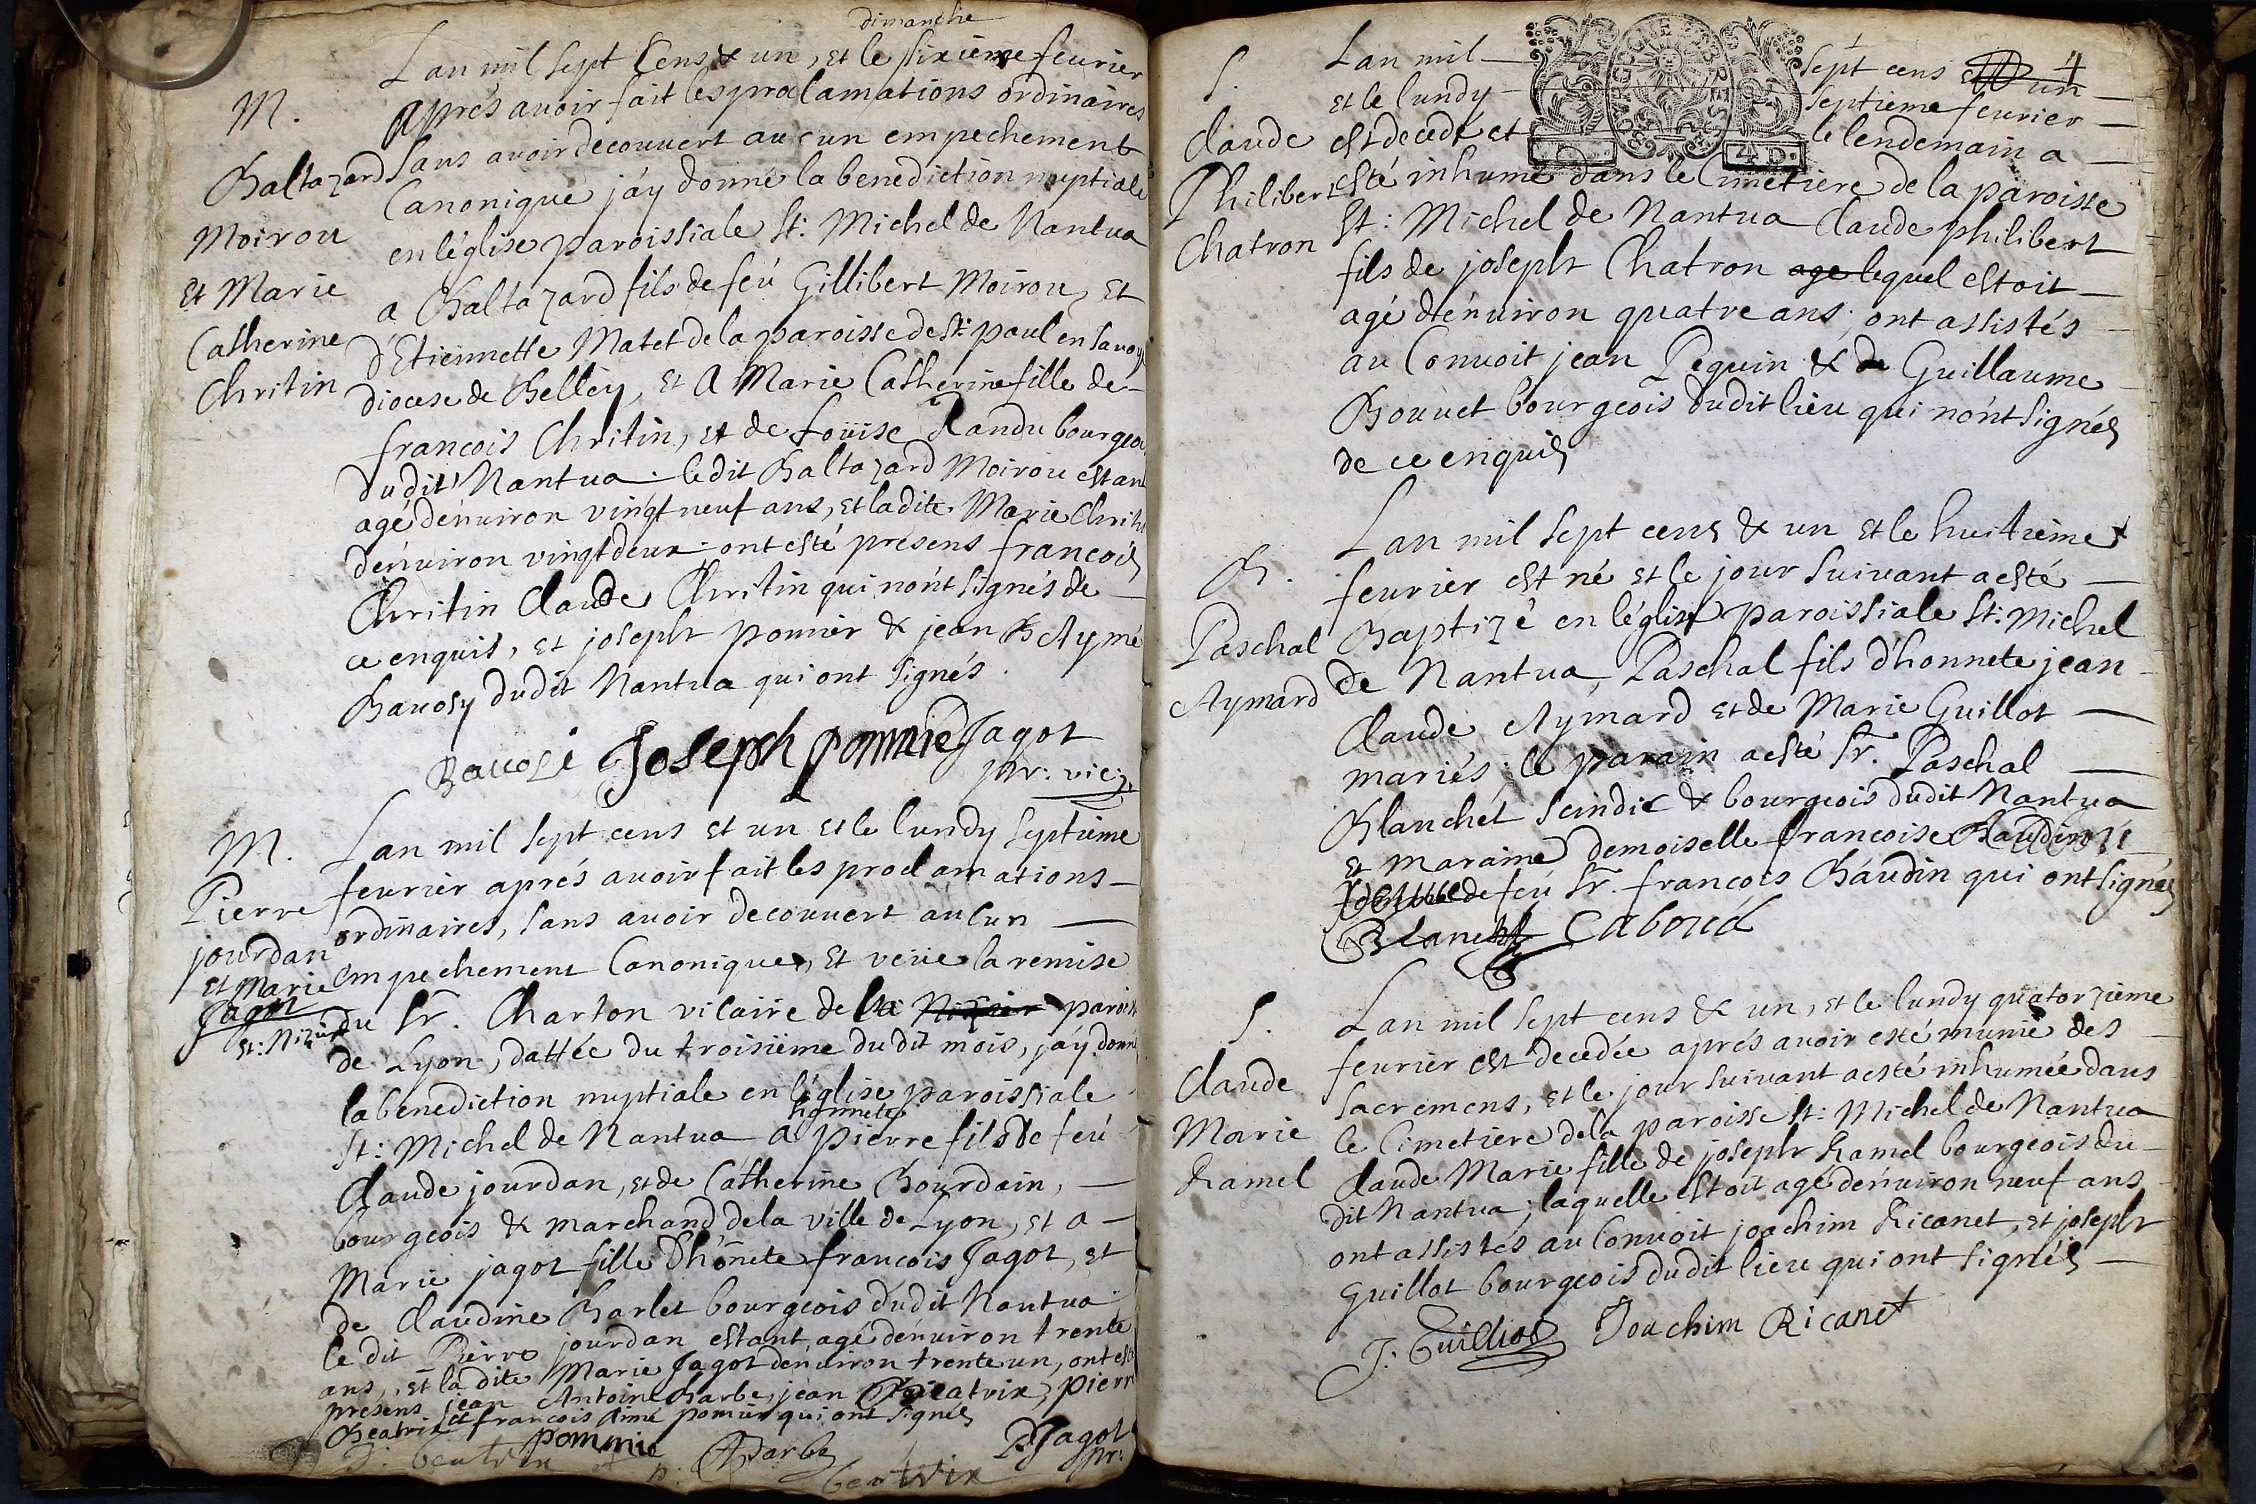 dimanche
Lan mil sept Cens & un, et le sixiéme feurier
M.
Aprés auoir fait les proclamations ordinaires
sans auoir decouuert aucun empechement
Baltazard
Moirou
et Marie
Catherine
Chritin
Canonique j'ay donné la benediction nuptiale
en l'église paroissiale St: Michel de Nantua
a Baltazard fils de feú Gillibert Moirou, et
d'Etiennette Matet de la paroisse de St: paul en Sauoy
diocese de Belley, et a Marie Catherine fille de
francois Chritin, et de Loüise Randu bourgeoi
dudit Nantua. ledit Baltazard Moirou estan
agé d'enuiron vingt neuf ans, et ladite Marie Chriti
d'enuiron vingt deux. ont esté presens francois
Chritin Claude Chritin qui n'ont signés de
ce enquis, et joseph pomier & jean B Aymé
Bauosy dudit Nantua qui ont signés.
Bauosi Joseph pommié Jagot
pr: vic:
M.
Pierre
jourdan
et Marie
Jagot
Lan mil sept cens et un et le lundy septiéme
feurier aprés auoir fait les proclamations
ordinaires, sans auoir decouuert aucun
empechement Canonique, et veüe la remise
St: Nizier
du Sr. Charton vicaire de la Nizier parois
de Lyon, dattée du troisiéme dudit mois, j'ay donné
la benediction nuptiale en l'église paroissiale
honnete
St: Michel de Nantua a pierre fils de feú
Claude jourdan, et de Catherine Bourdain,
bourgeois & marchand de la ville de Lyon, et a
Marie jagot fille d'hónnete francois Jagot, et
de Claudine Barlet bourgeois dudit Nantua
le dit Pierre jourdan estant agé d'enuiron trente
ans, et la dite Marie Jagot d'enuiron trente un, ont esté
presens jean Antoine Barbe, jean Beatrix, pierr
Beatrix et francois Aimé pomier qui ont signés
pommie Barbe P Jagot
pr:
beatrix
S.
Claude
Philibert
Chatron
Lan mil sept cens & un 4
et le lundy septieme feurier
est decedé et le lendemain a
esté inhumé dans le Cimetiere de la paroisse
St: Michel de Nantua Claude philibert
fils de joseph Chatron age lequel estoit
agé d'enuiron quatre ans; ont assistés
au Conuoit jean Pequin & de Guillaume
Bouuet bourgeois dudit lieu qui n'ont signés
de ce enquis
B.
Paschal
Aymard
Lan mil sept cens & un et le huitieme
feurier est né et le jour suiuant a esté
Baptizé en l'église paroissiale St: Michel
de Nantua, Paschal fils d'honnete jean
Claude Aymard et de Marie Guillot
mariés; le parain a esté Sr. Paschal
Blanchet scindic & bourgeois dudit Nantua
et maraine demoiselle francoise
de feú Sr. francois Baudin qui ont signés
Blanchet Caboud
S.
Claude
Marie
Ramel
Lan mil sept cens & un, et le lundy quatorziéme
feurier est decedée aprés auoir esté munie des
sacremens, et le jour suiuant a esté inhumée dans
le Cimetiere de la paroisse St: Michel de Nantua
Claude Marie fille de joseph Ramel bourgeois du
dit Nantua; laquelle estoit agé d'enuiron neuf ans
ont assistés au Conuoit joachim Ricanet, et joseph
Guillot bourgeois dudit lieu qui ont signés
J: Guilliot Jouachim Ricanet